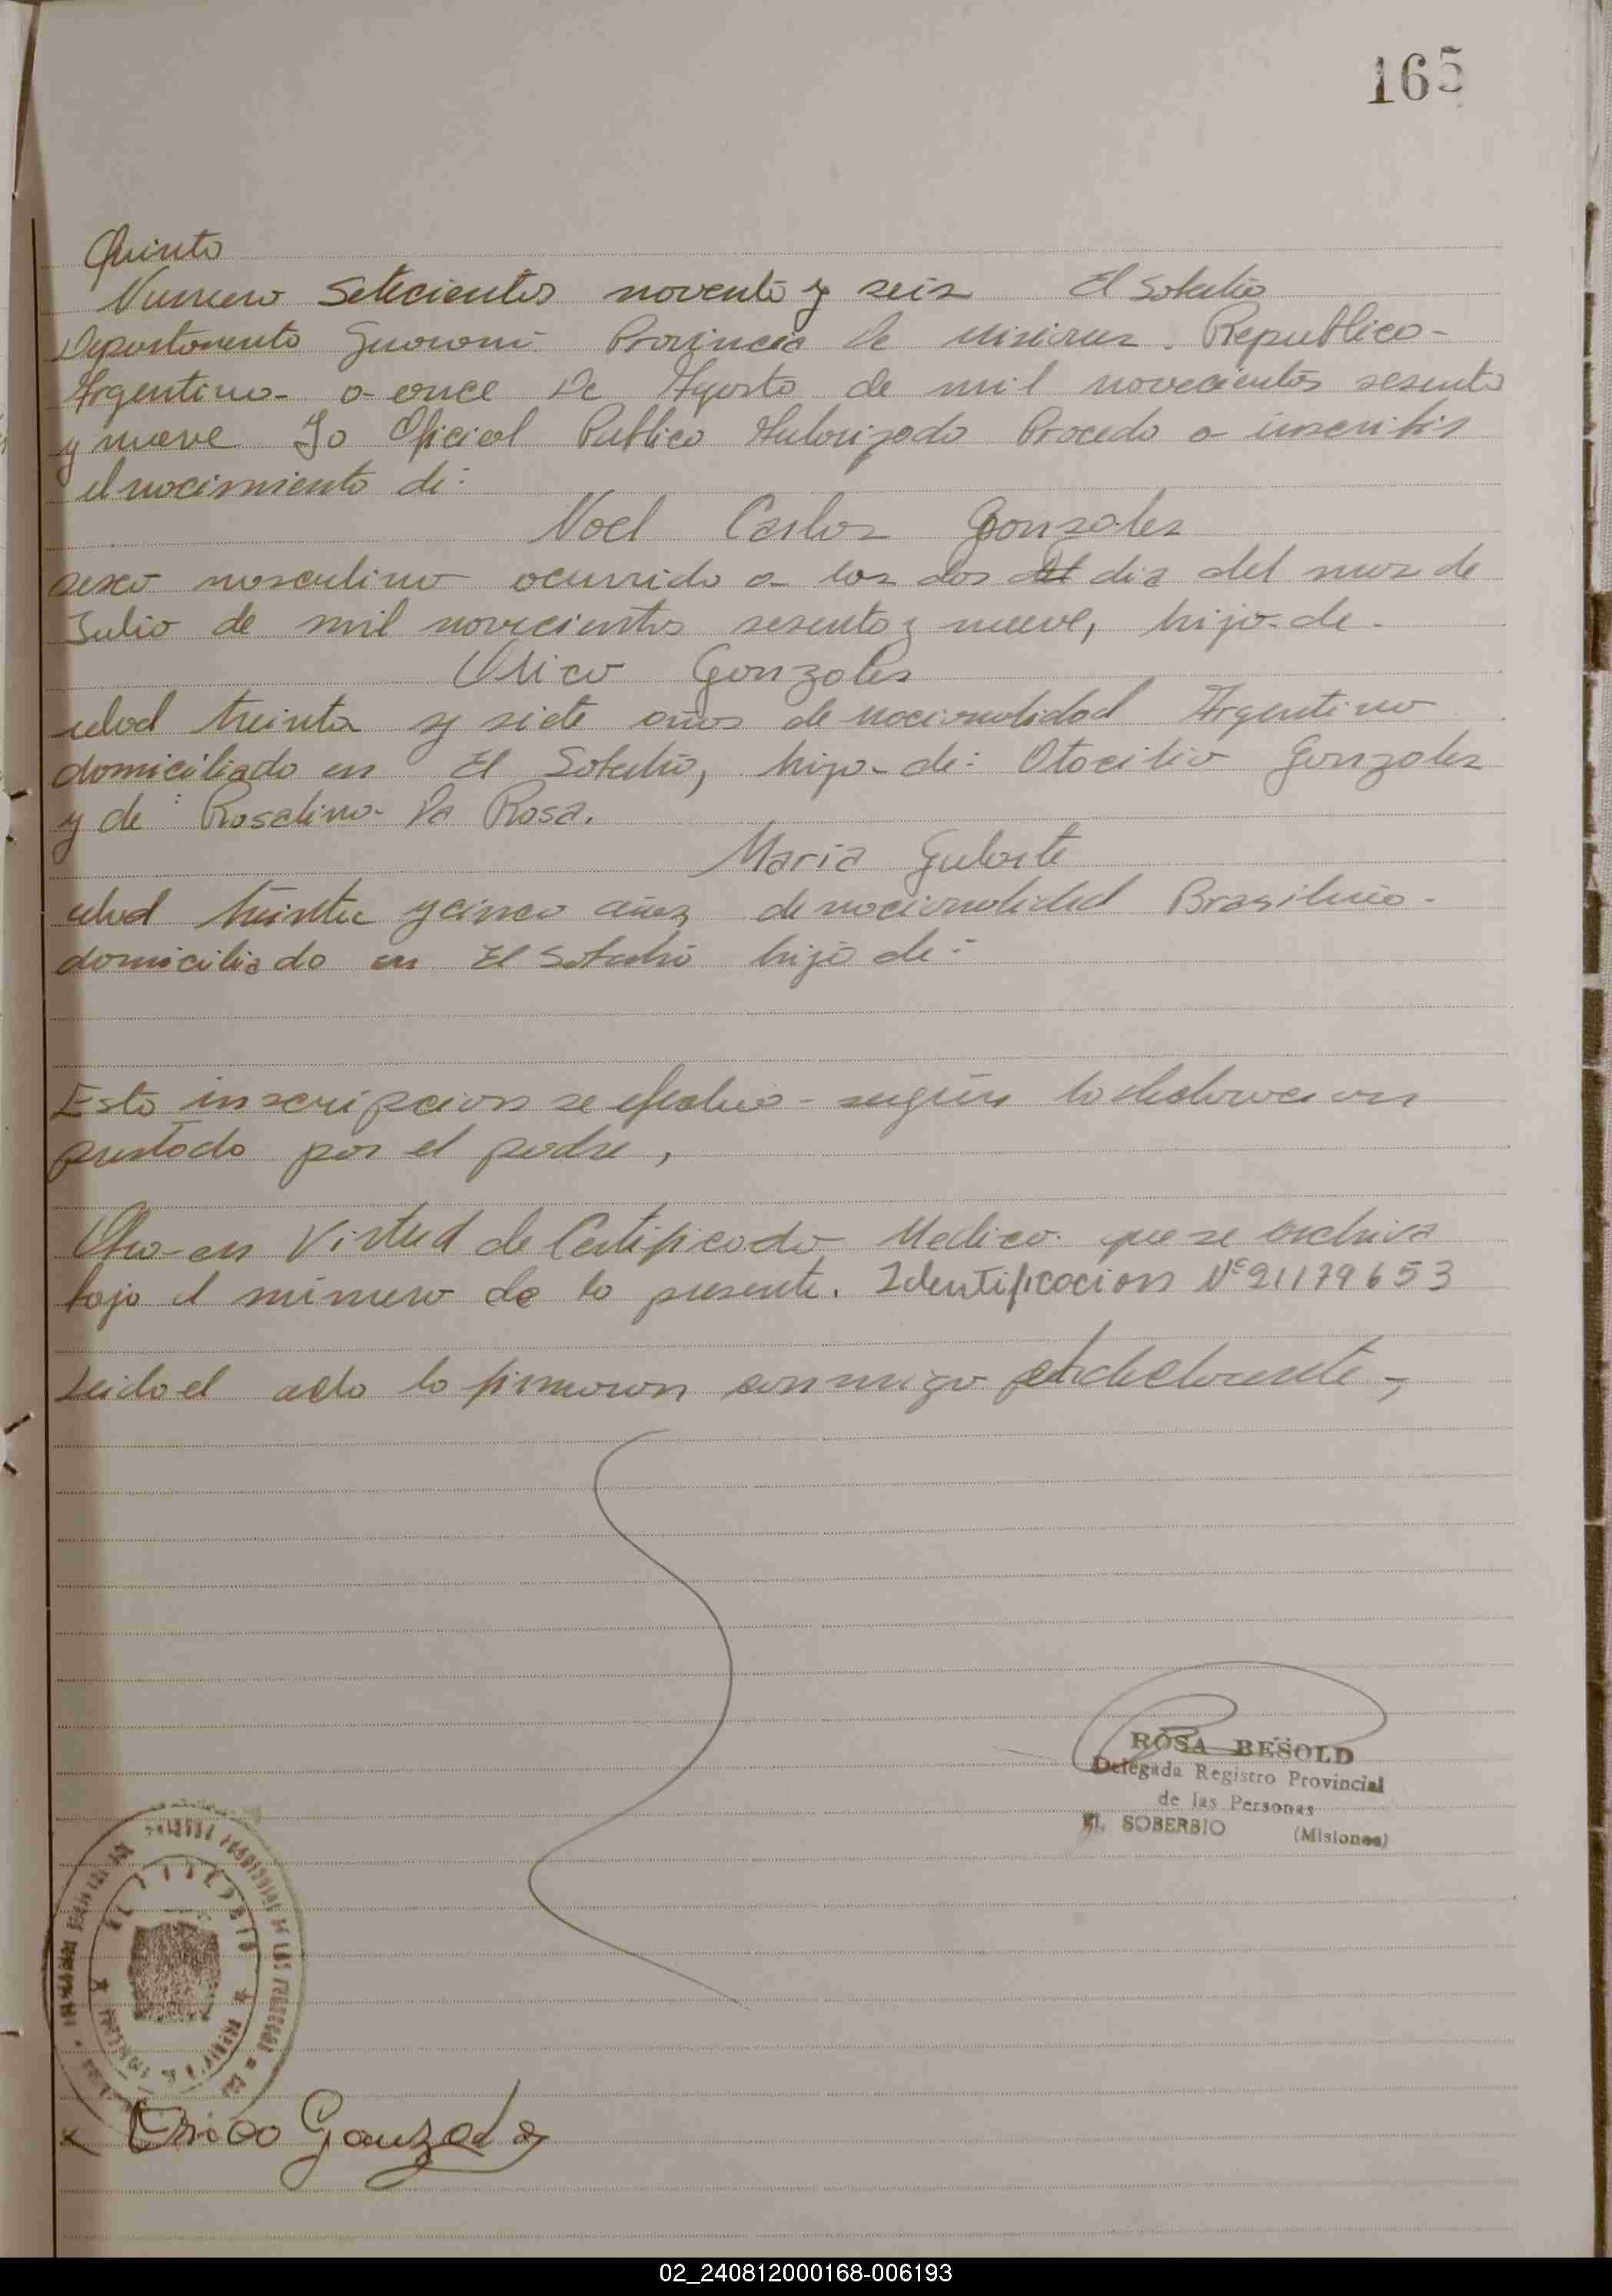 165
Quinto
Numero Setecientos noventa y seis El Soberbio
Departamento Guarani Provincia de Misiones. Republica
Argentina a once De Agosto de mil novecientos sesenta
y nueve Yo Oficial Publico Autorizado Procedo a inscribir
el nacimiento de:
Noel Carlos Gonzales
sexo masculino ocurrido a los dos dia del mes de
Julio de mil novecientos sesenta y nueve, hijo de
Gonzales
edad treinta y siete años de nacionalidad Argentino
domiciliado en El Soberbio, hijo de: Otacilio Gonzales
y de: Rosalina Da Rosa.
Maria
edad treinta y cinco años de nacionalidad Brasileña
domiciliado en El Soberbio hija de:
Esta inscripcion se efectua según la declaracion
prestado por el padre,
Obra en Virtud de Certificado Medico que se archiva
bajo el número de la presente. Identificacion Nº 21179653
Leido el acta la firmaron conmigo declarante,
ROSA BESOLD
Delegada Registro Provincial
de las Personas
EL SOBERBIO (Misiones)
Gonzales
02_240812000168-006193